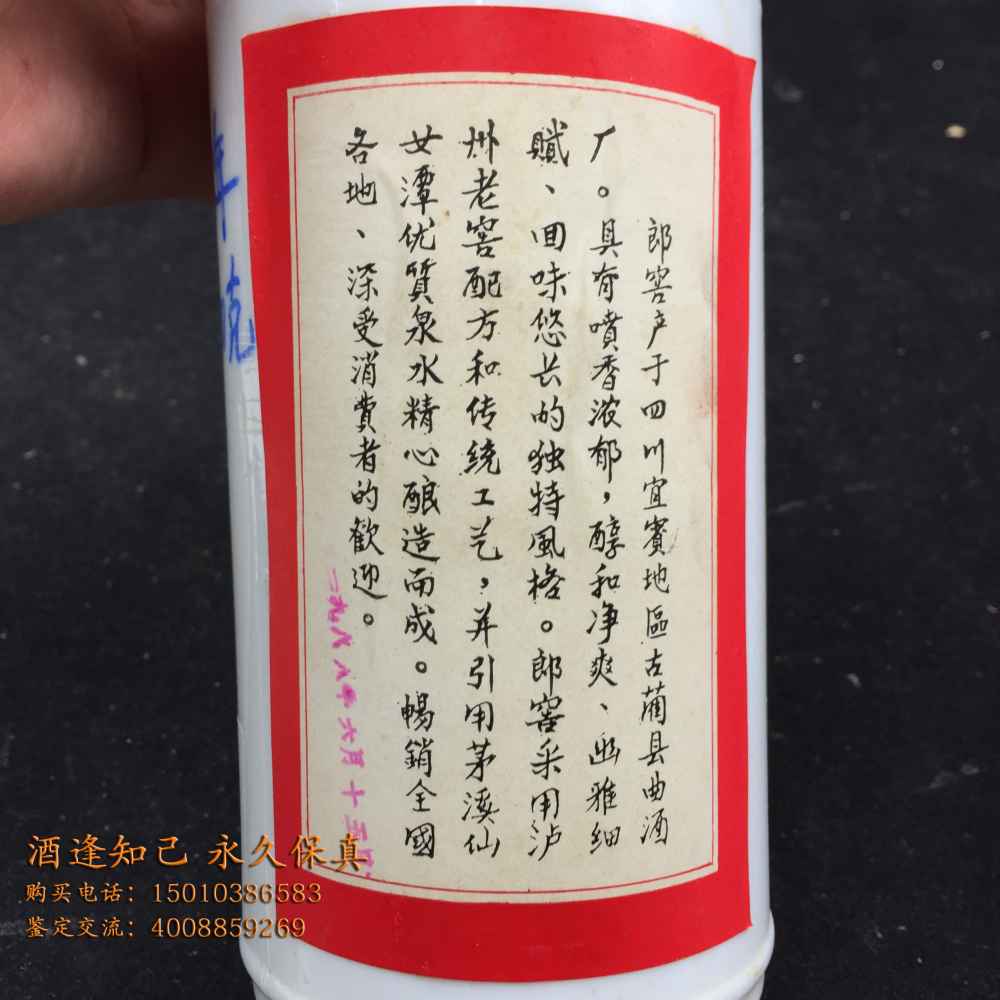 郎窖产于四川宜賓地區古藺县曲酒
厂。具有喷香浓郁，醇和净爽、幽雅细
膩、回味悠长的独特風格。郎窖采用泸
州老窖配方和传统工艺，并引用茅溪仙
女潭优質泉水精心酿造而成。暢銷全國
各地、深受消費者的歡迎。
一九八八年六月十五
年
克
酒逢知己 永久保真
购买电话：15010386583
鉴定交流：4008859269